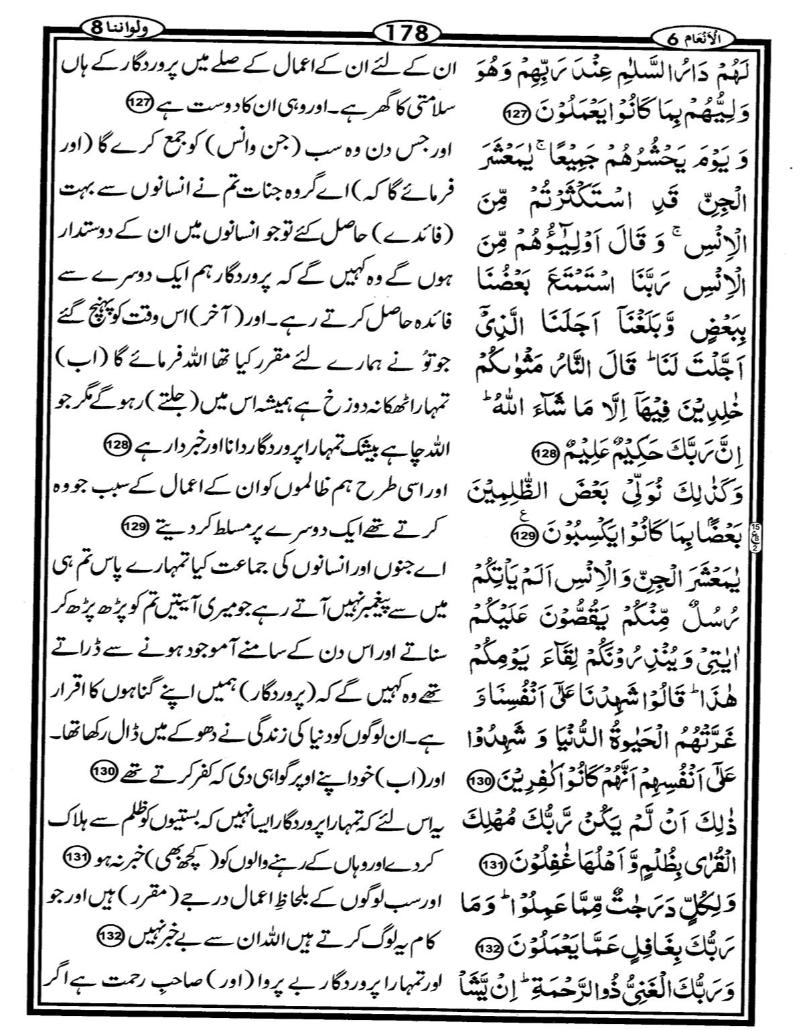 الانعام 6
178
ولواننا 8
لَهُمْ دَارُ السَّلٰمِ عِنْدَ رَبِّهِمْ وَهُوَ
وَلِيُّهُمْ بِمَا كَانُوْا يَعْمَلُوْنَ 127
وَ يَوْمَ يَحْشُرُهُمْ جَمِيْعًا ۚ يٰمَعْشَرَ
الْجِنِّ قَدِ اسْتَكْثَرْتُمْ مِّنَ
الْاِنْسِ ۚ وَ قَالَ اَوْلِيٰٓؤُهُمْ مِّنَ
الْاِنْسِ رَبَّنَا اسْتَمْتَعَ بَعْضُنَا
بِبَعْضٍ وَّ بَلَغْنَاۤ اَجَلَنَا الَّذِيْۤ
اَجَّلْتَ لَنَا ؕ قَالَ النَّارُ مَثْوٰىكُمْ
خٰلِدِيْنَ فِيْهَاۤ اِلَّا مَا شَآءَ اللّٰهُ ؕ
اِنَّ رَبَّكَ حَكِيْمٌ عَلِيْمٌ 128
وَكَذٰلِكَ نُوَلِّيْ بَعْضَ الظّٰلِمِيْنَ
بَعْضًۢا بِمَا كَانُوْا يَكْسِبُوْنَ 129 ع
يٰمَعْشَرَ الْجِنِّ وَالْاِنْسِ اَلَمْ يَاْتِكُمْ
رُسُلٌ مِّنْكُمْ يَقُصُّوْنَ عَلَيْكُمْ
اٰيٰتِيْ وَيُنْذِرُوْنَكُمْ لِقَآءَ يَوْمِكُمْ
هٰذَا ؕ قَالُوْا شَهِدْنَا عَلٰۤى اَنْفُسِنَا وَ
غَرَّتْهُمُ الْحَيٰوةُ الدُّنْيَا وَ شَهِدُوْا
عَلٰۤى اَنْفُسِهِمْ اَنَّهُمْ كَانُوْا كٰفِرِيْنَ 130
ذٰلِكَ اَنْ لَّمْ يَكُنْ رَّبُّكَ مُهْلِكَ
الْقُرٰى بِظُلْمٍ وَّ اَهْلُهَا غٰفِلُوْنَ 131
وَلِكُلٍّ دَرَجٰتٌ مِّمَّا عَمِلُوْا ؕ وَمَا
رَبُّكَ بِغَافِلٍ عَمَّا يَعْمَلُوْنَ 132
وَ رَبُّكَ الْغَنِيُّ ذُو الرَّحْمَةِ ؕ اِنْ يَّشَاْ
ان کے لئے ان کے اعمال کے صلے میں پروردگار کے ہاں
سلامتی کا گھر ہے۔ اور وہی ان کا دوست ہے 127
اور جس دن وہ سب (جن وانس) کو جمع کرے گا (اور
فرمائے گا کہ) اے گروہ جنات تم نے انسانوں سے بہت
(فائدے) حاصل کئے تو جو انسانوں میں ان کے دوستدار
ہوں گے وہ کہیں گے کہ پروردگار ہم ایک دوسرے سے
فائدہ حاصل کرتے رہے۔ اور (آخر) اس وقت کو پہنچ گئے
جو تُو نے ہمارے لئے مقرر کیا تھا اللہ فرمائے گا (اب)
تمہارا ٹھکانہ دوزخ ہے ہمیشہ اس میں (جلتے) رہو گے مگر جو
اللہ چاہے بیشک تمہارا پروردگار دانا اور خبردار ہے 128
اور اسی طرح ہم ظالموں کو ان کے اعمال کے سبب جو وہ
کرتے تھے ایک دوسرے پر مسلط کر دیتے 129
اے جنوں اور انسانوں کی جماعت کیا تمہارے پاس تم ہی
میں سے پیغمبر نہیں آتے رہے جو میری آیتیں تم کو پڑھ پڑھ کر
سناتے اور اس دن کے سامنے آموجود ہونے سے ڈراتے
تھے وہ کہیں گے کہ (پروردگار) ہمیں اپنے گناہوں کا اقرار
ہے۔ ان لوگوں کو دنیا کی زندگی نے دھوکے میں ڈال رکھا تھا۔
اور (اب) خود اپنے اوپر گواہی دی کہ کفر کرتے تھے 130
یہ اس لئے کہ تمہارا پروردگار ایسا نہیں کہ بستیوں کو ظلم سے ہلاک
کر دے اور وہاں کے رہنے والوں کو (کچھ بھی) خبر نہ ہو 131
اور سب لوگوں کے بلحاظِ اعمال درجے (مقرر) ہیں اور جو
کام یہ لوگ کرتے ہیں اللہ ان سے بے خبر نہیں 132
اور تمہارا پروردگار بے پروا (اور) صاحبِ رحمت ہے اگر